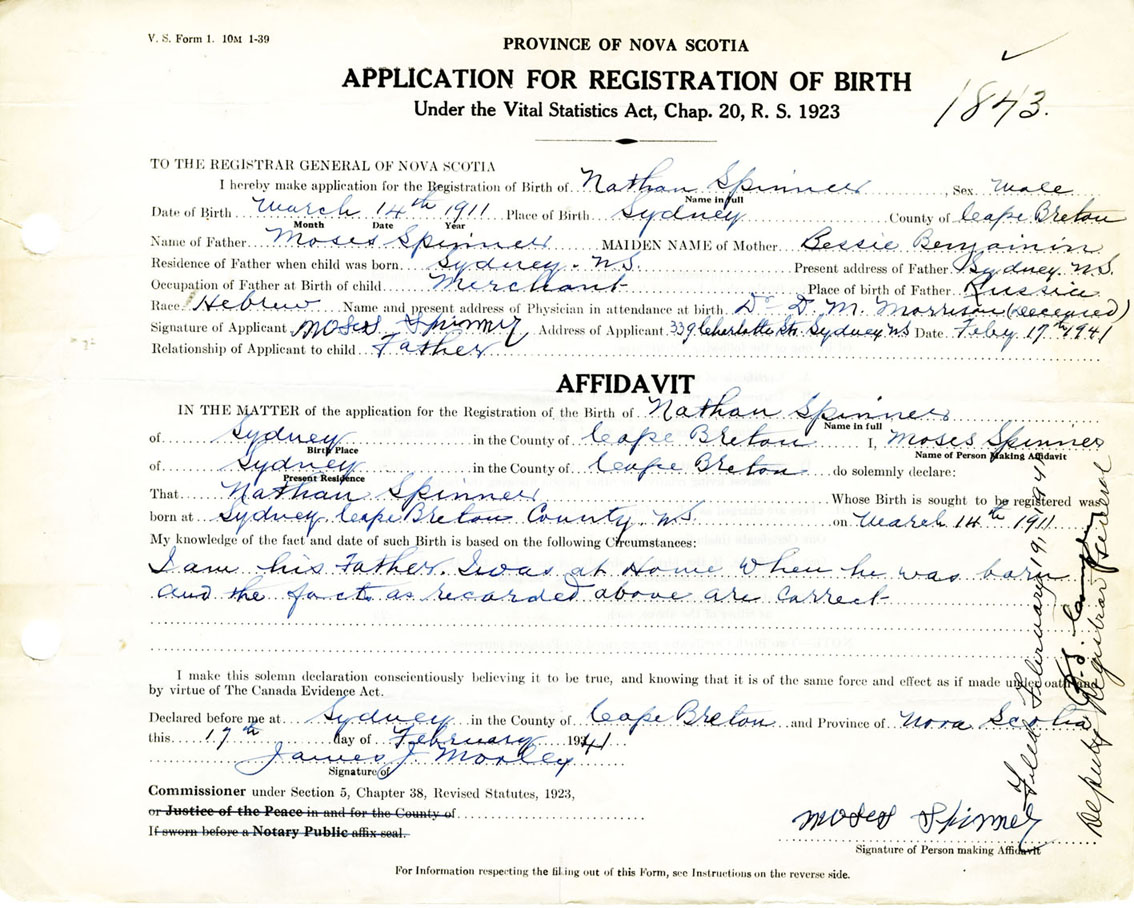 V. S. Form 1. 10M 1-39
PROVINCE OF NOVA SCOTIA
APPLICATION FOR REGISTRATION OF BIRTH
Under the Vital Statistics Act, Chap. 20, R. S. 1923
1843.
TO THE REGISTRAR GENERAL OF NOVA SCOTIA
I hereby make application for the Registration of Birth of Nathan Spinner, Sex Male
Name in full
Date of Birth March 14th 1911 Place of Birth Sydney County of Cape Breton
Month Date Year
Name of Father Moses Spinner MAIDEN NAME of Mother Bessie Benjamin
Residence of Father when child was born Sydney. N.S. Present address of Father Sydney. N.S.
Occupation of Father at Birth of child Merchant Place of birth of Father Russia
Race Hebrew Name and present address of Physician in attendance at birth Dr D. M. Morrison (Deceased)
Signature of Applicant Moses Spinner Address of Applicant 339 Charlotte St. Sydney NS Date Feby 17th 1941
Relationship of Applicant to child Father
AFFIDAVIT
IN THE MATTER of the application for the Registration of the Birth of Nathan Spinner
Name in full
of Sydney in the County of Cape Breton I, Moses Spinner
Birth Place Name of Person Making Affidavit
of Sydney in the County of Cape Breton do solemnly declare:
Present Residence
That Nathan Spinner Whose Birth is sought to be registered was
born at Sydney, Cape Breton County. N.S. on March 14th 1911
My knowledge of the fact and date of such Birth is based on the following Circumstances:
I am his Father. I was at Home when he was born
and the facts as recorded above are Correct
I make this solemn declaration conscientiously believing it to be true, and knowing that it is of the same force and effect as if made under oath and
by virtue of The Canada Evidence Act.
Declared before me at Sydney in the County of Cape Breton and Province of Nova Scotia
this 17th day of February 1941
James J. Morley
Signature of
Commissioner under Section 5, Chapter 38, Revised Statutes, 1923,
or Justice of the Peace in and for the County of
If sworn before a Notary Public affix seal.
Moses Spinner
Signature of Person making Affidavit
For Information respecting the filing out of this Form, see Instructions on the reverse side.
Filed February 19, 1941
Deputy Registrar General